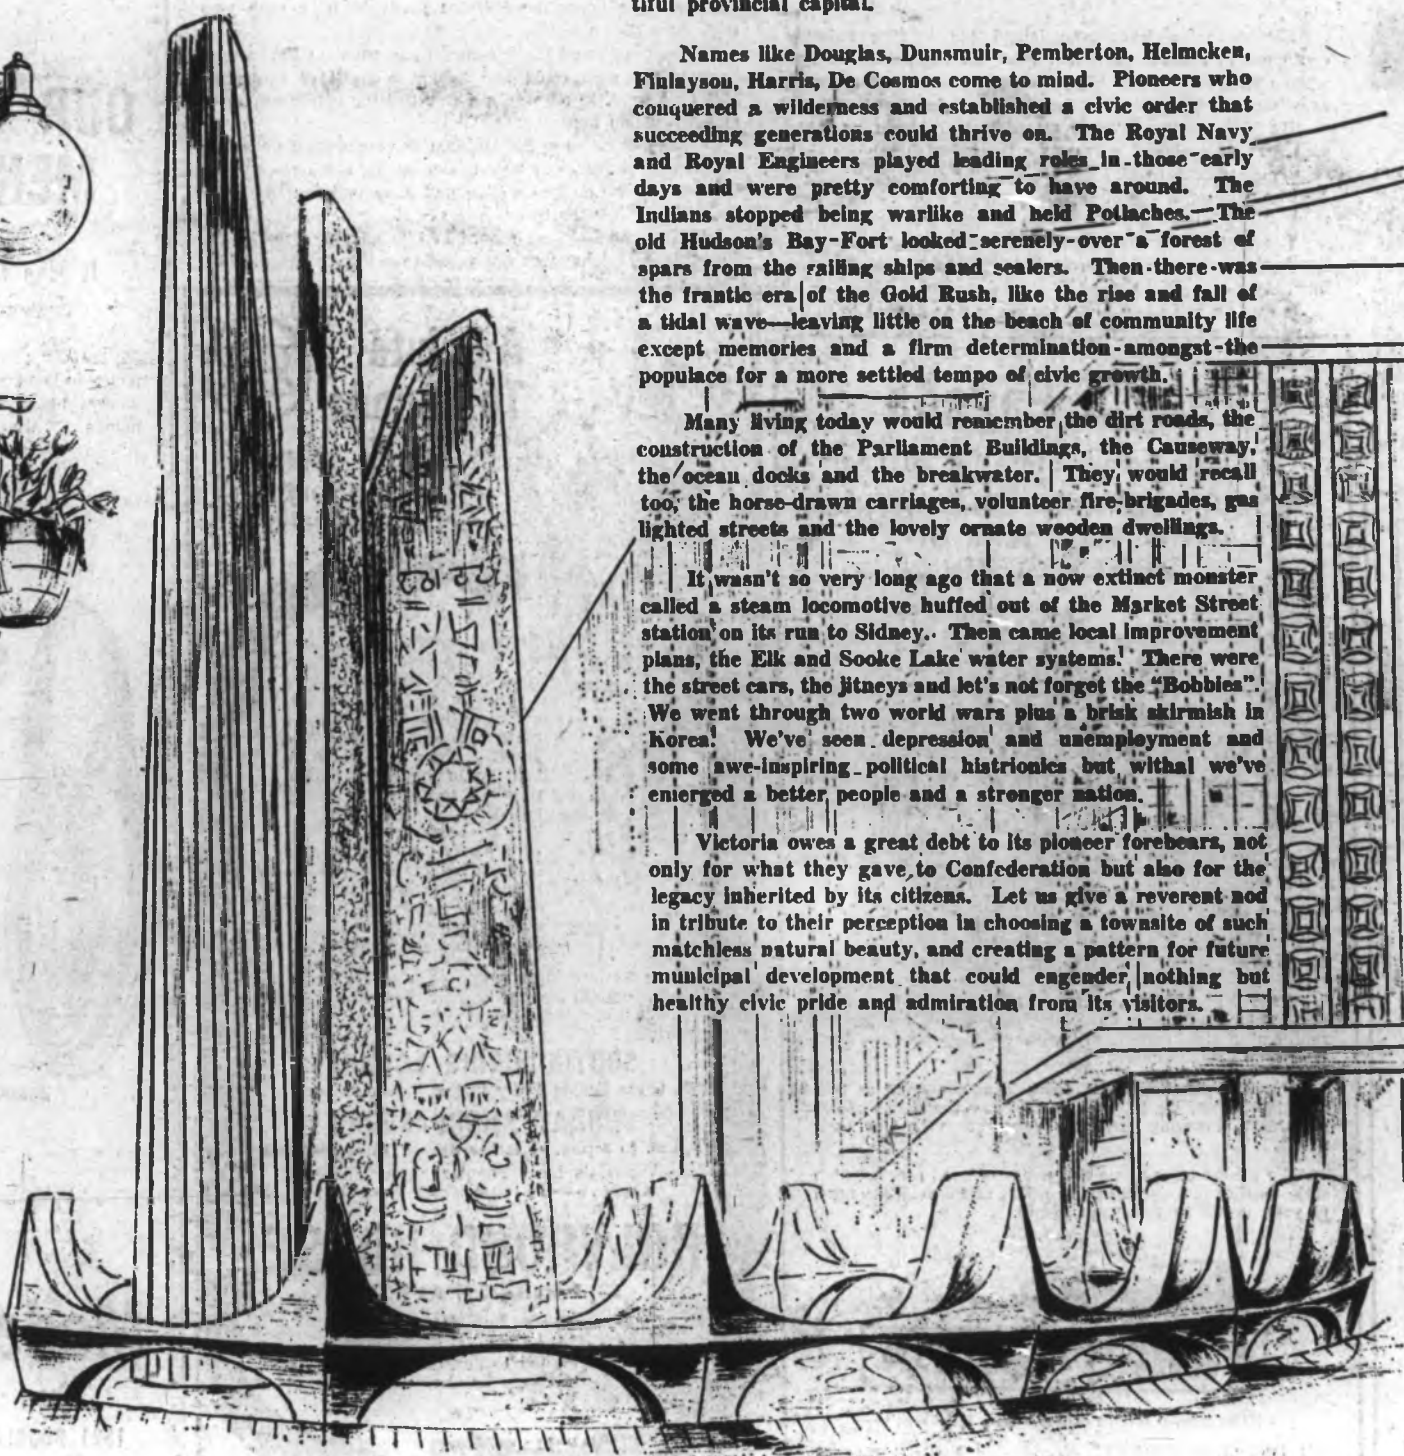 tiful provincial capital.
Names like Douglas, Dunsmuir, Pemberton, Helmcken,
Finlayson, Harris, De Cosmos come to mind. Pioneers who
conquered a wilderness and established a civic order that
succeeding generations could thrive on. The Royal Navy
and Royal Engineers played leading roles in those early
days and were pretty comforting to have around. The
Indians stopped being warlike and held Potlaches. The
old Hudson's Bay Fort looked serenely over a forest of
spars from the sailing ships and sealers. Then there was
the frantic era of the Gold Rush, like the rise and fall of
a tidal wave—leaving little on the beach of community life
except memories and a firm determination amongst the
populace for a more settled tempo of civic growth.
Many living today would remember the dirt roads, the
construction of the Parliament Buildings, the Causeway,
the ocean docks and the breakwater. They would recall
too, the horse-drawn carriages, volunteer fire-brigades, gas
lighted streets and the lovely ornate wooden dwellings.
It wasn't so very long ago that a now extinct monster
called a steam locomotive huffed out of the Market Street
station on its run to Sidney. Then came local improvement
plans, the Elk and Sooke Lake water systems. There were
the street cars, the jitneys and let's not forget the "Bobbies".
We went through two world wars plus a brisk skirmish in
Korea. We've seen depression and unemployment and
some awe-inspiring political histrionics but withal we've
emerged a better people and a stronger nation.
Victoria owes a great debt to its pioneer forebears, not
only for what they gave to Confederation but also for the
legacy inherited by its citizens. Let us give a reverent nod
in tribute to their perception in choosing a townsite of such
matchless natural beauty, and creating a pattern for future
municipal development that could engender nothing but
healthy civic pride and admiration from its visitors.